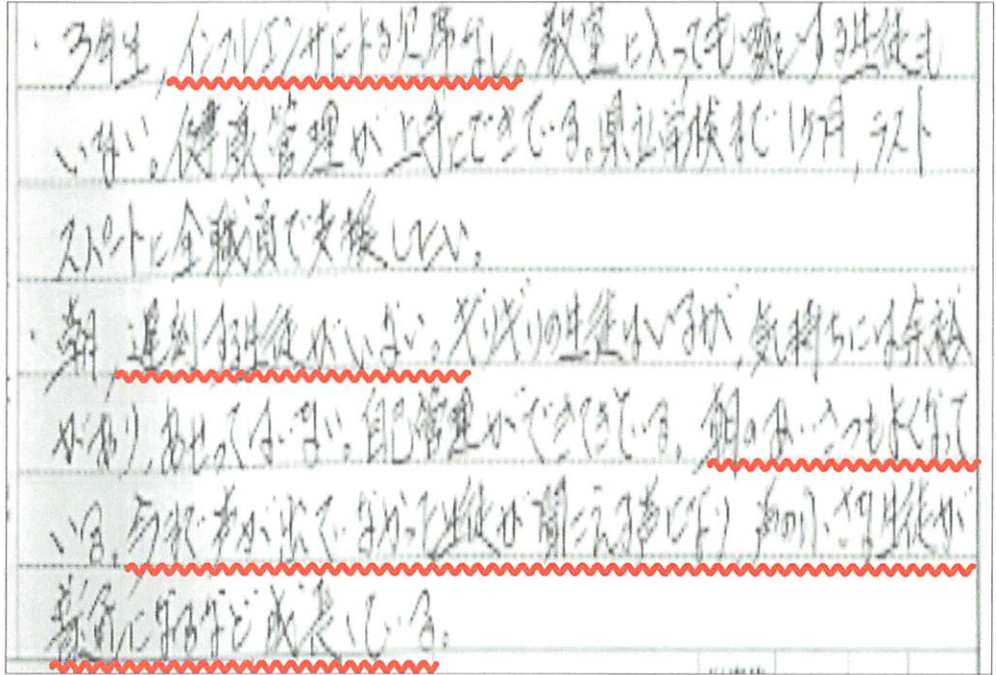 ・3年生、インフルエンザによる欠席なし。教室に入っても咳をする生徒も
いない。健康管理が上手にできている。県立高校まで1ヶ月、ラスト
スパートに全職員で支援したい。
・朝、遅刻する生徒がいない。ギリギリの生徒はいるが、気持ちには余裕
があり、あせってはいない。自己管理ができてきている。朝のあいさつもよくなって
いる。今まで声が出ていなかった生徒が聞こえる声になり、声の小さな生徒が
元気になるなど成長している。